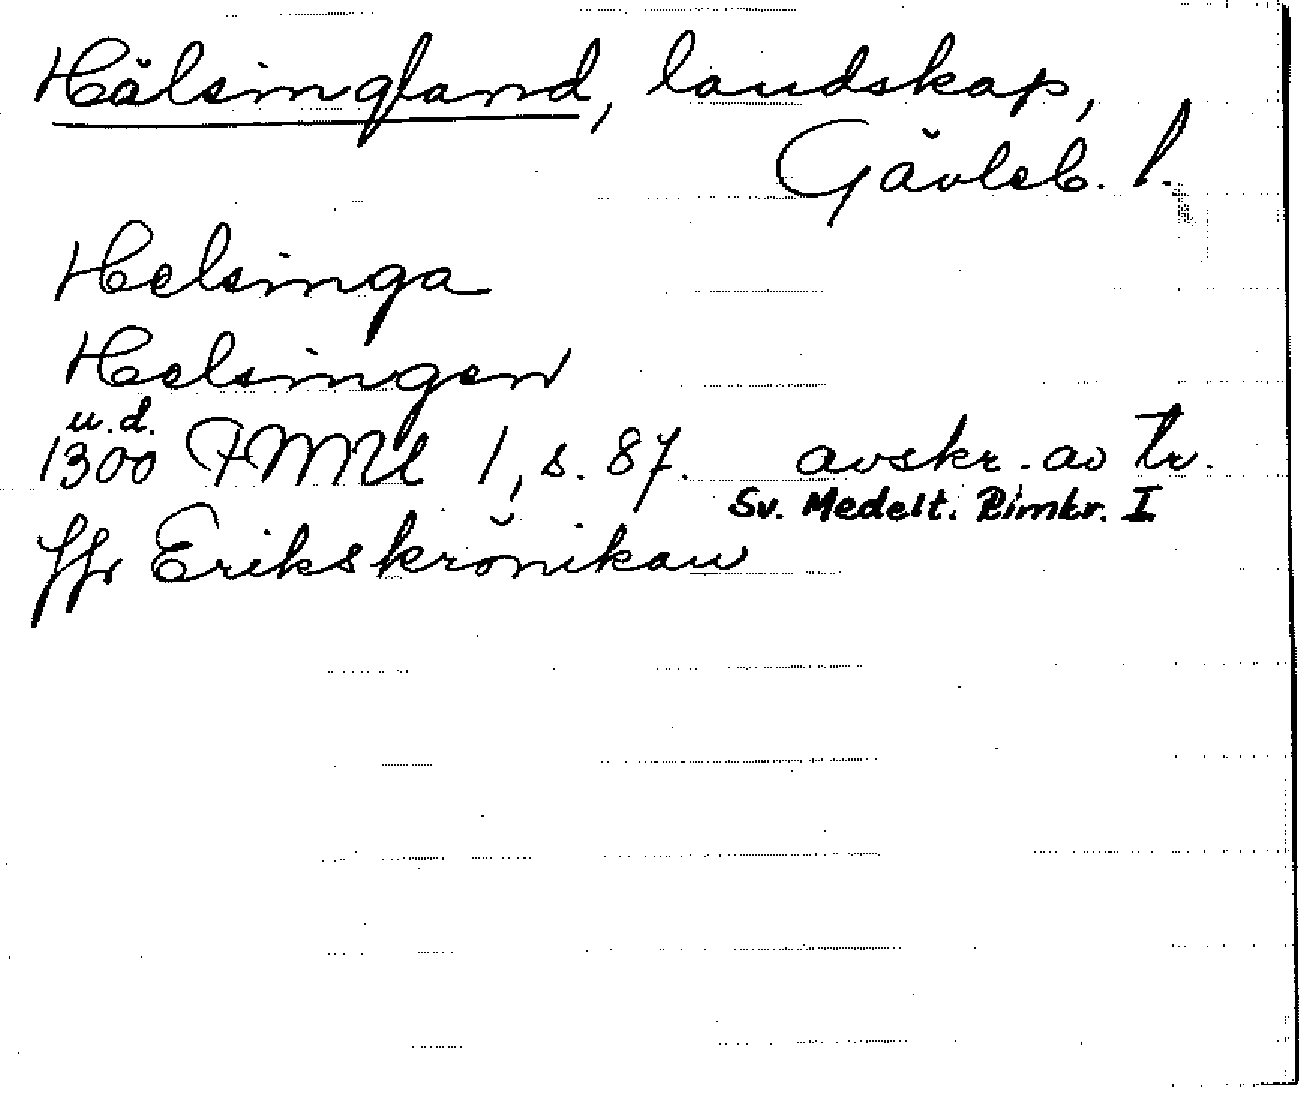 Hälsingland, landskap,
Gävleb. l.
Helsinga
Helsingen
u.d.
1300 FMU 1, s. 87. avskr. av tr.
Sv. Medelt. Rimkr. I
ffr Erikskrönikan